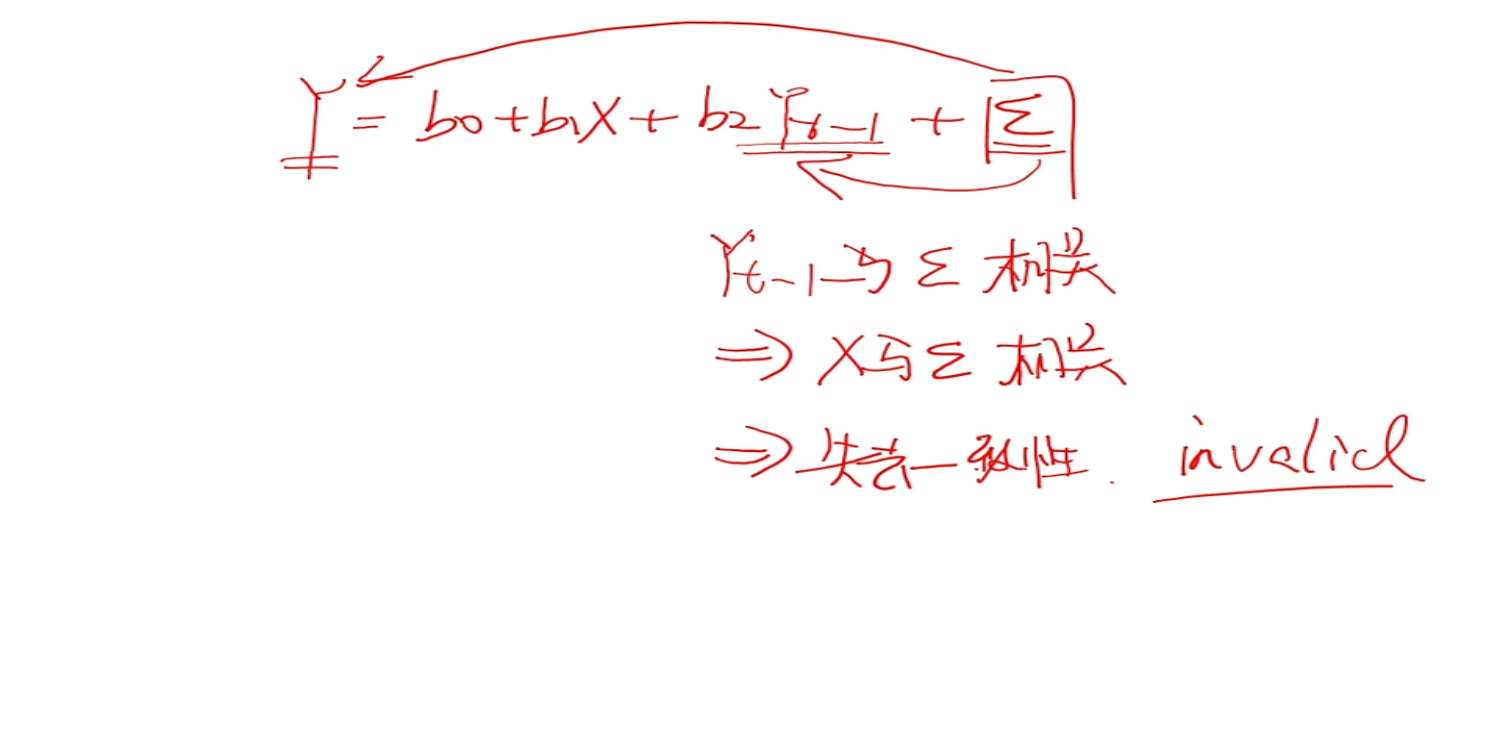 Y = b0 + b1X + b2 Yt-1 + Σ
Yt-1与Σ相关
⇒ X与Σ相关
⇒ 失去一致性. invalid